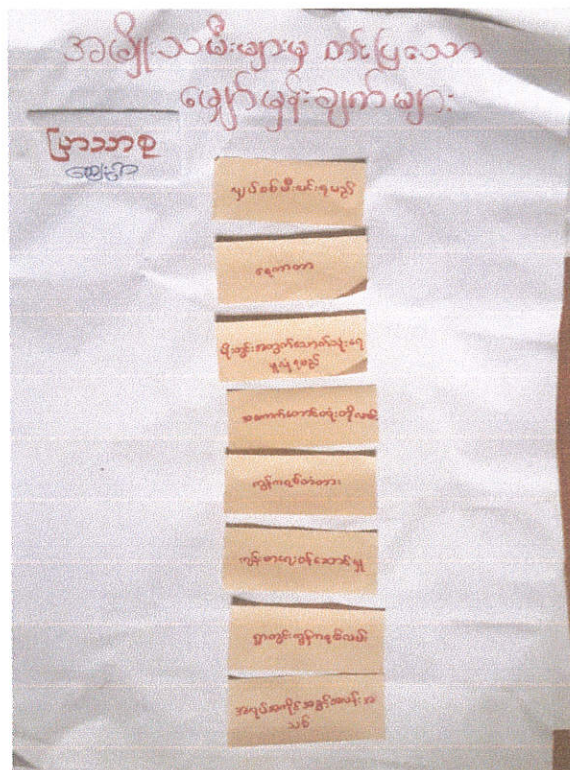 အမျိုးသမီးများမှ တင်ပြသော
မျှော်မှန်းချက်များ
ပြာသာစု
ကျေးရွာ
လျှပ်စစ်မီးလင်းရမည်
ရေကာတာ
မိုးတွင်းအတွက်သောက်သုံးရေ
ဖူလုံရမည်
ကွန်ကရစ်တံတား
ကျန်းမာရေးဝန်ဆောင်မှု
ရွာတွင်းကွန်ကရစ်လမ်း
အလုပ်အကိုင်အခွင့်အလမ်းအ
သစ်